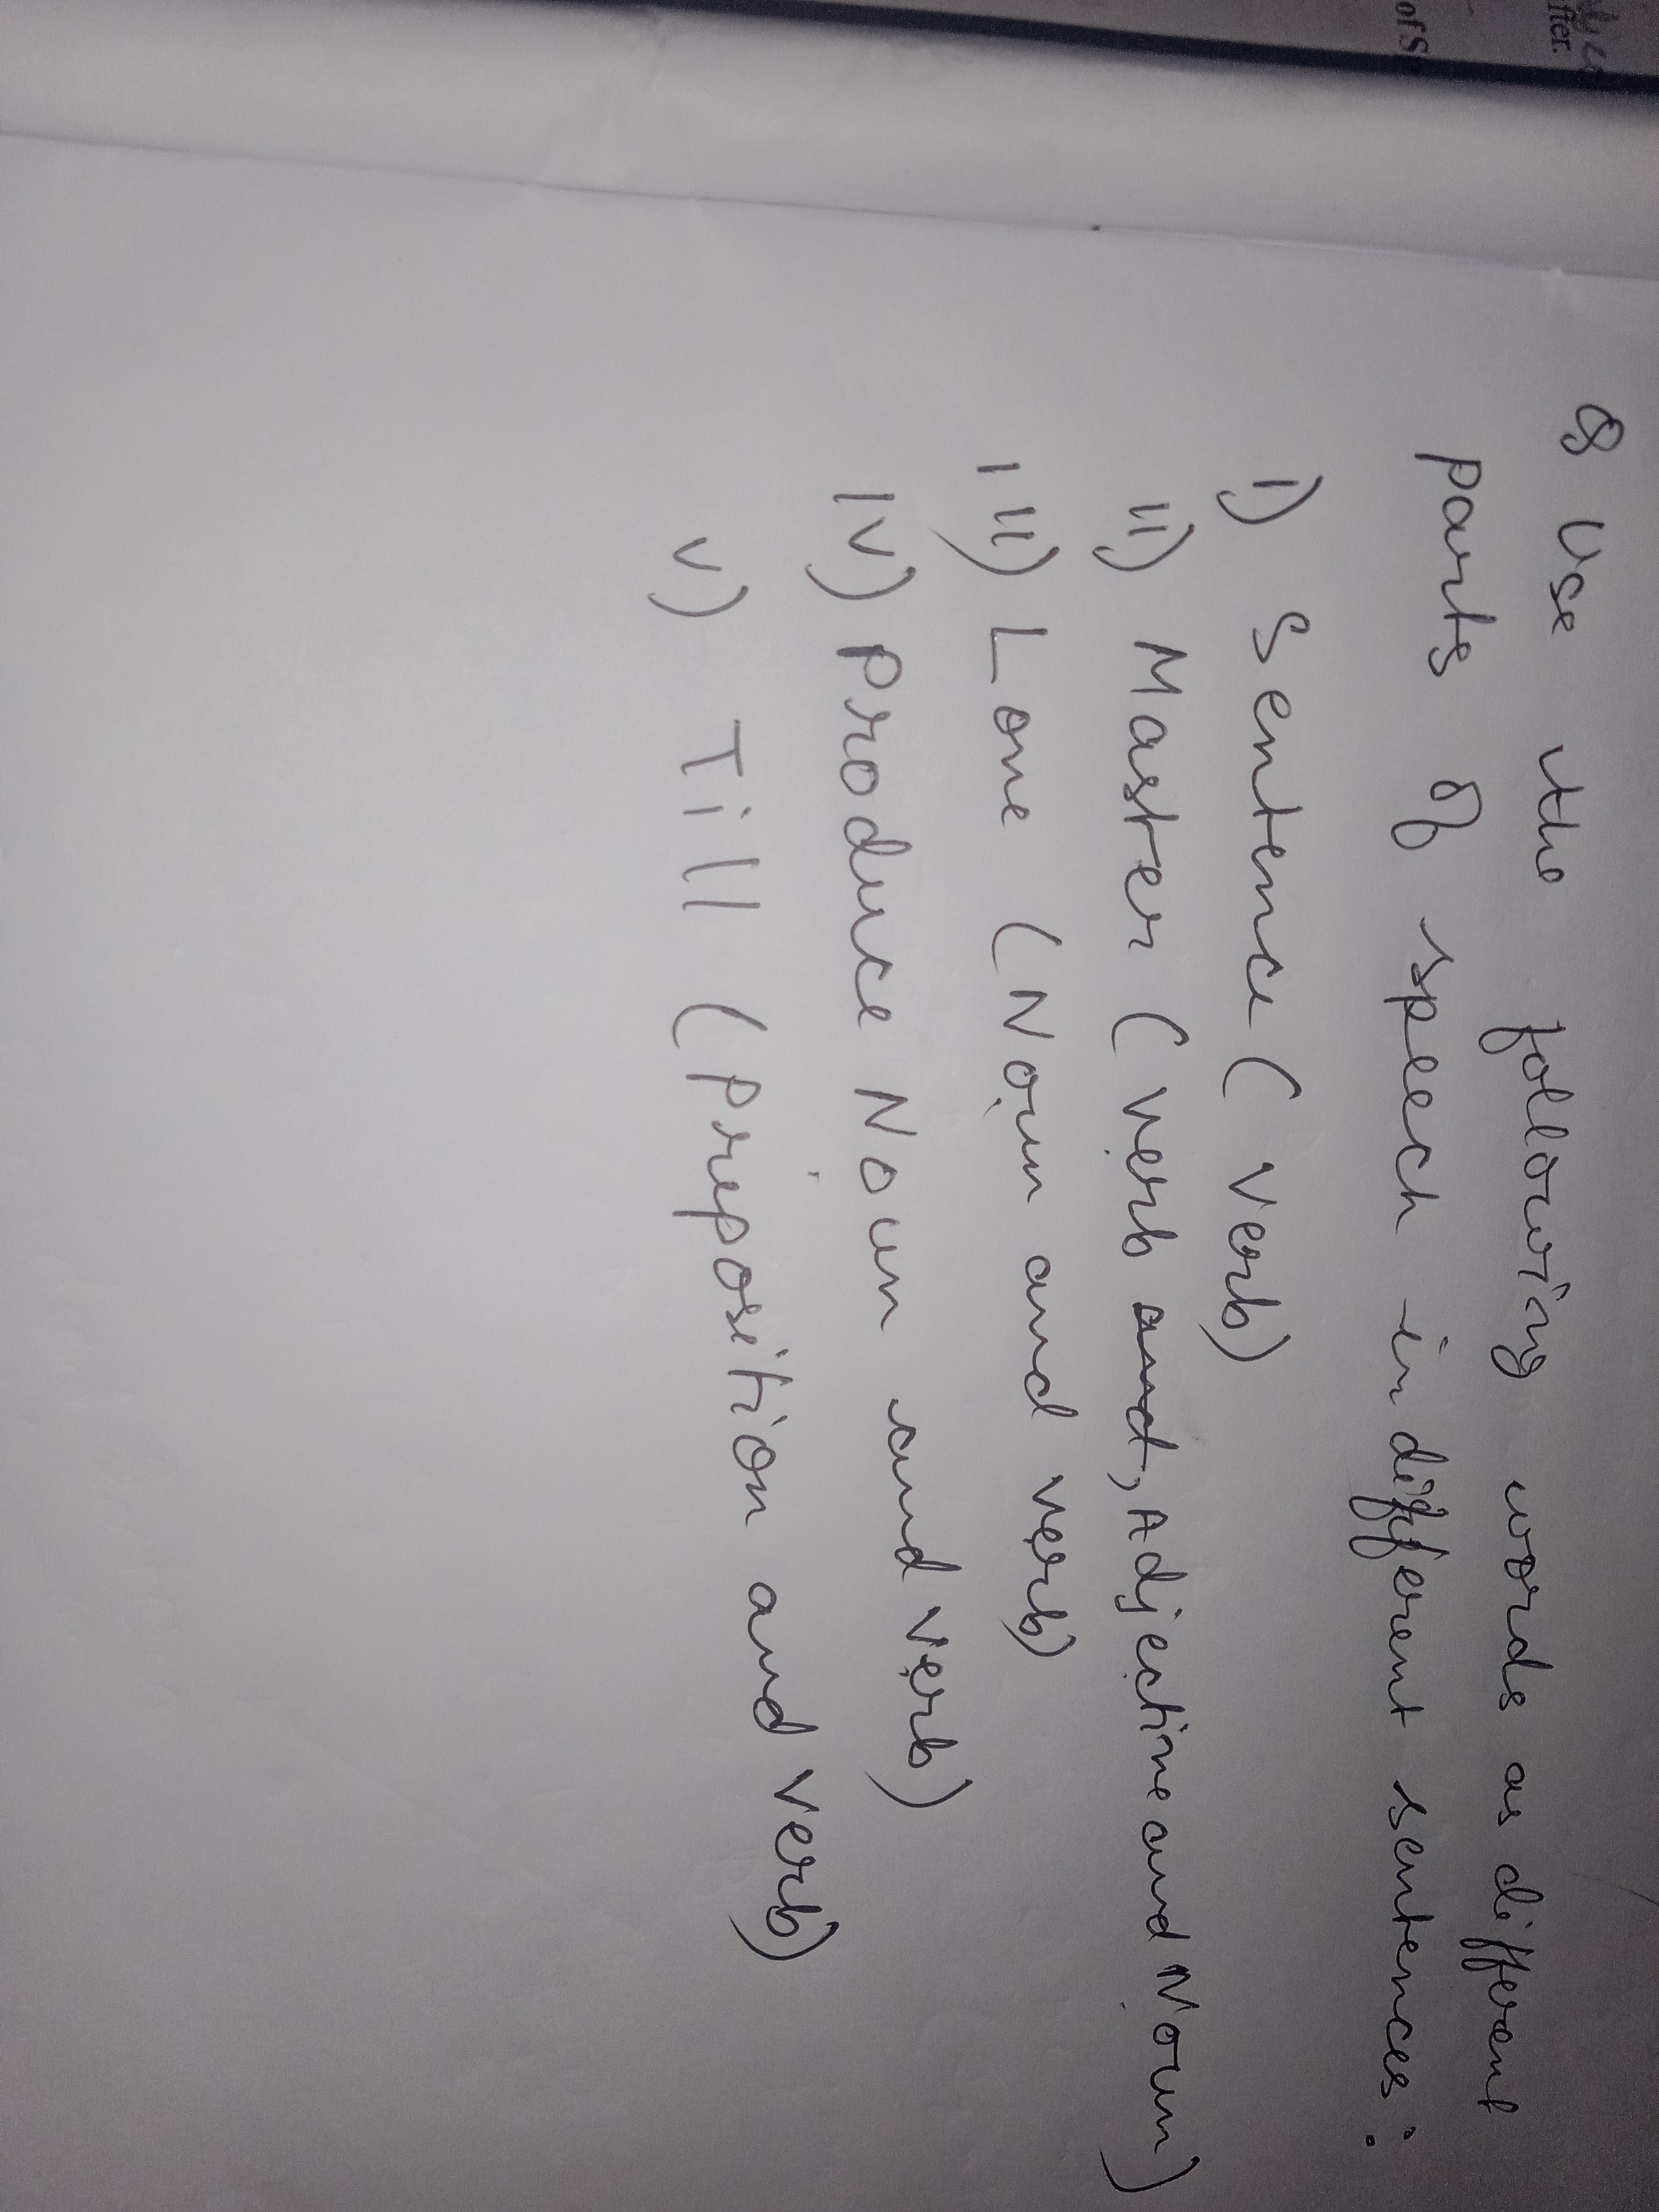 Q Use the following words as different
parts of speech in different sentences:
I) Sentence (Verb)
II) Master (Verb and, Adjective and Noun)
III) Lone (Noun and verb)
IV) Produce Noun and verb)
V) Till (Preposition and verb)
fter.
of S